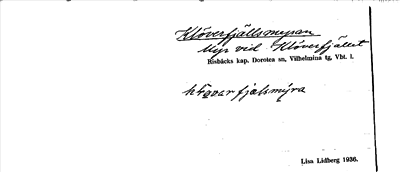 Klöverfjällsmyran
Myr vid Klöverfjället
Risbäcks kap. Dorotea sn, Vilhelmina tg, Vbt. l.
fjalsmýra
Lisa Lidberg 1936.